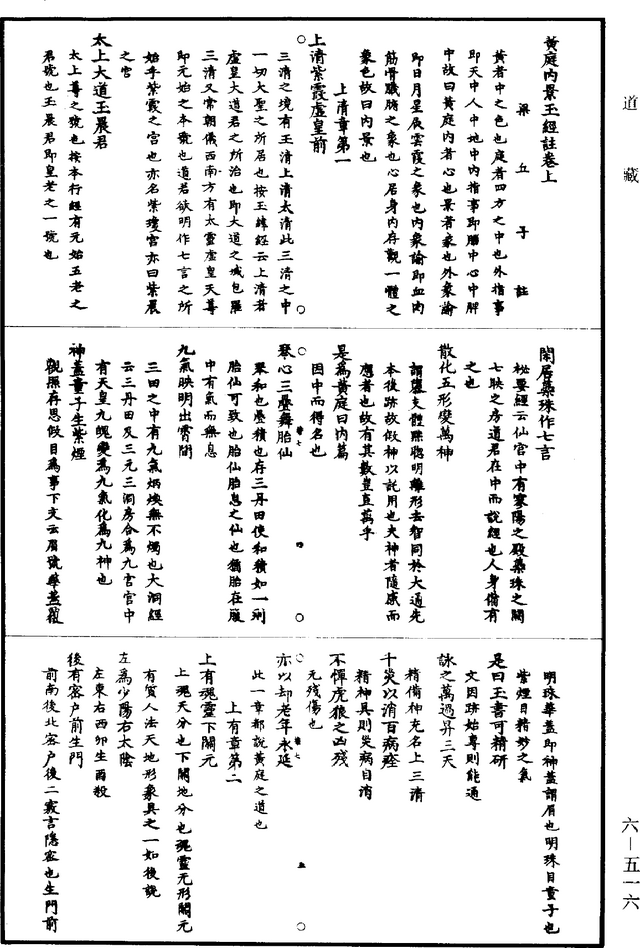 道藏
黃庭內景玉經註卷上
梁丘子註
黃者中之色也庭者四方之中也外指事
即天中人中地中內指事即腦中心中脾
中故曰黃庭內者心也景者象也外象諭
即日月星辰雲霞之象也內象諭即血肉
筋骨臟腑之象也心居身內存觀一體之
象色故曰內景也
上清章第一
上清紫霞虛皇前
三清之境有玉清上清太清此三清之中
一切大聖之所居也按玉緯經云上清者
虛皇大道君之所治也即大道之域包羅
三清又常朝儀西南方有太靈虛皇天尊
即元始之本號也道君欲明作七言之所
始乎紫霞之宮也亦名紫瓊宮亦曰紫晨
之宮
太上大道玉晨君
太上尊之號也按本行經有元始五老之
君號也玉晨君即皇老之一號也
閑居蘂珠作七言
秘要經云仙宮中有寥陽之殿蘂珠之闕
七映之房道君在中而說經也人身備有
之也
散化五形變萬神
謂隳支體黜聰明離形去智同於大通先
本後跡故假神以託用也夫神者隨感而
應者也故有其數豈直萬乎
是為黃庭曰內篇
因中而得名也
琴心三疊舞胎仙
琴和也疊積也存三丹田使和積如一則
胎仙可致也胎仙胎息之仙也猶胎在腹
中有氣而無息
九氣映明出霄間
三田之中有九氣炳煥無不燭也大洞經
云三丹田及三元三洞房合為九宮宮中
有天皇九魄變為九氣化為九神也
神蓋童子生紫煙
觀照存思假目為事下文云眉號華蓋覆
明珠華蓋即神蓋謂眉也明珠目童子也
紫煙目精妙之氣
是曰玉書可精研
文因跡始專則能通
詠之萬過昇三天
精備神充名上三清
千災以消百病痊
精神具則災病自消
不憚虎狼之凶殘
无殘傷也
亦以却老年永延
此一章都說黃庭之道也
上有章第二
上有魂靈下關元
上魂天分也下關地分也魂靈无形關元
有質人法天地形象具之一如後說
左為少陽右太陰
左東右西卯生酉殺
後有密戶前生門
前南後北密戶後二竅言隱密也生門前
六—五一六